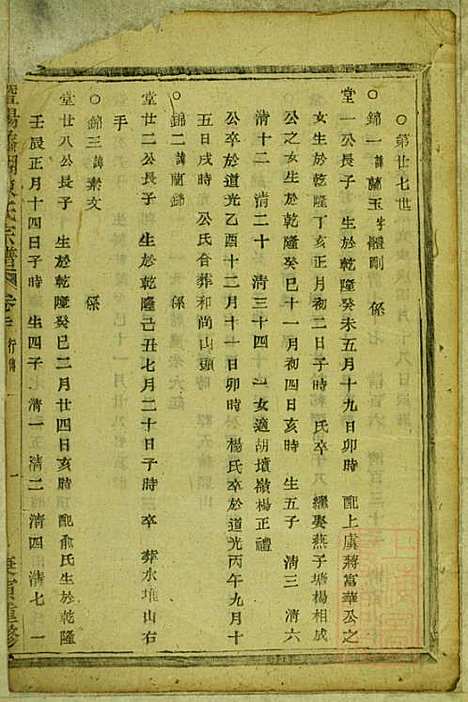 ○第廿七世
○錦一諱蘭玉字體剛　係
堂一公長子　生於乾隆癸未五月十九日卯時　配上虞蔣富華公之
女生於乾隆丁亥正月初二日子時　氏卒　繼娶燕子塘楊相成
公之女生於乾隆癸巳十一月初四日亥時　生五子　清三　清六
清十二　清二十　清三十四　一女適胡墳嶺楊正禮
公卒於道光乙酉十二月十一日卯時　楊氏卒於道光丙午九月十
五日戌時　公氏合葬和尚山頭
○錦二諱蘭錦　係
堂廿二公長子　生於乾隆己丑七月二十日子時　卒　葬水堆山右
手
○錦三諱素文　係
堂廿八公長子　生於乾隆癸巳二月廿四日亥時　配俞氏生於乾隆
壬辰正月十四日子時　生四子　清一　清二　清四　清七　一
氏宗譜